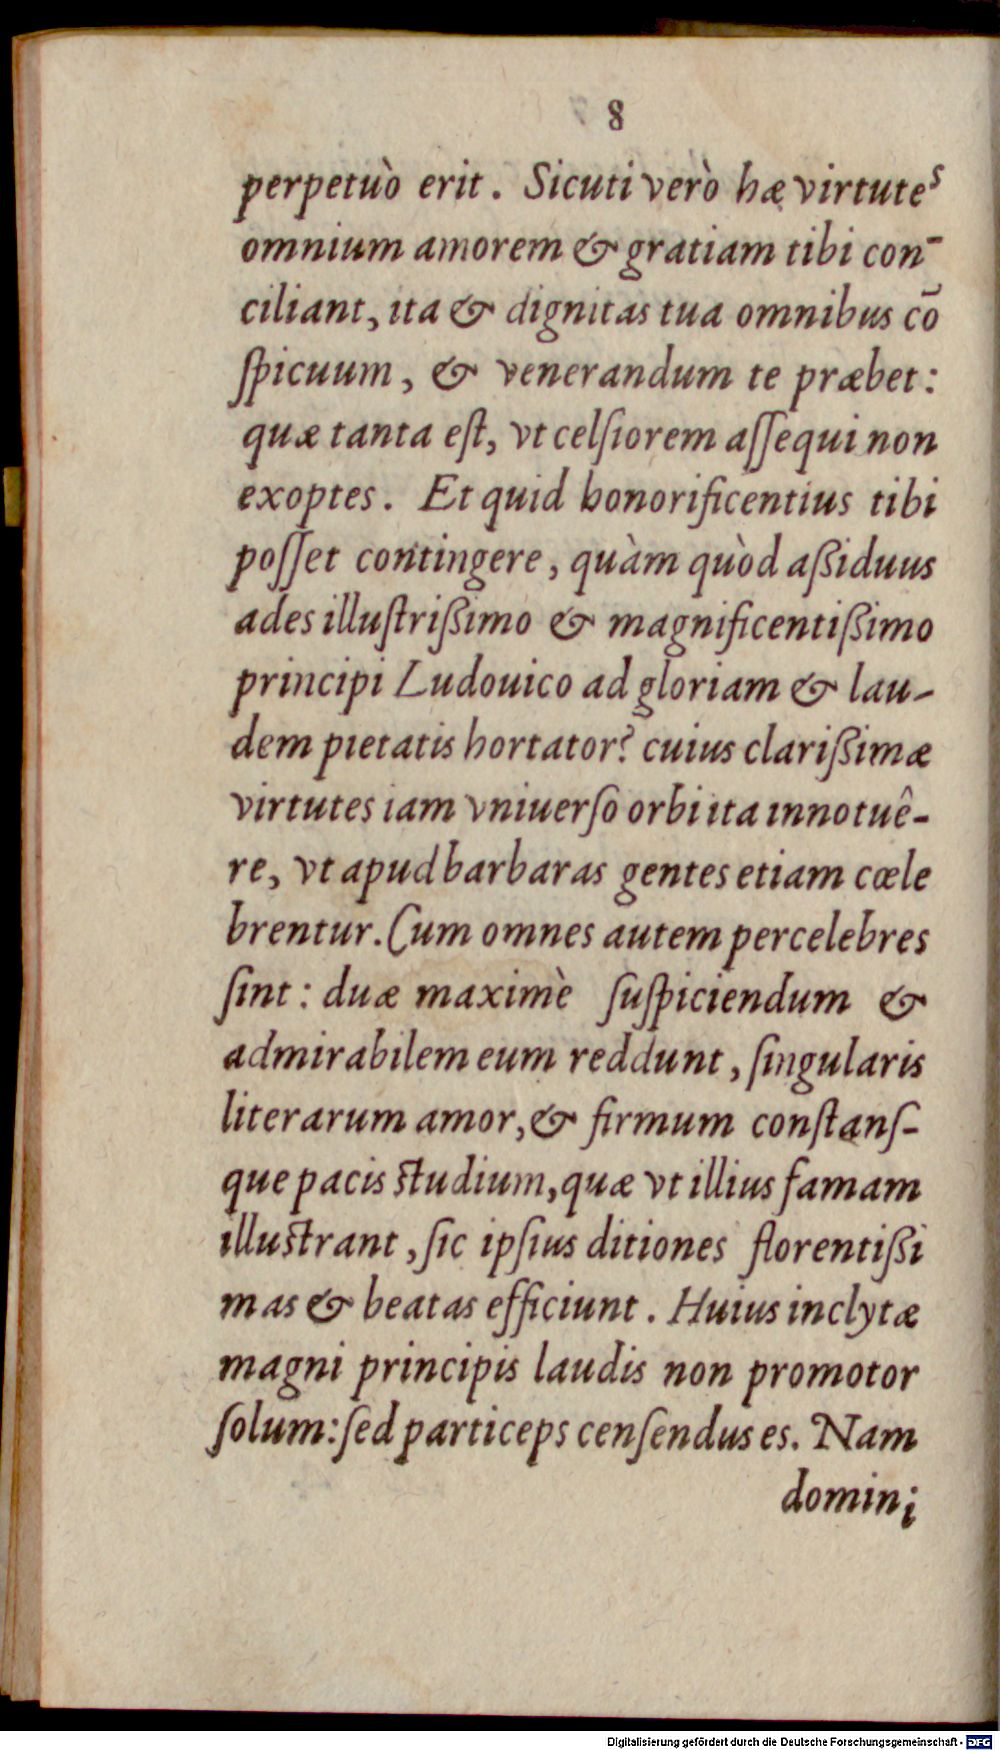 8
perpetuò erit. Sicuti verò hæ virtutes
omnium amorem & gratiam tibi con-
ciliant, ita & dignitas tua omnibus cō
ſpicuum, & venerandum te præbet:
quæ tanta eſt, vt celſiorem aſſequi non
exoptes. Et quid honorificentius tibi
poſſet contingere, quàm quòd aßiduus
ades illuſtrißimo & magnificentißimo
principi Ludouico ad gloriam & lau-
dem pietatis hortator? cuius clarißimæ
virtutes iam vniuerſo orbi ita innotuê-
re, vt apud barbaras gentes etiam cœle
brentur. Cum omnes autem percelebres
ſint: duæ maximè ſuſpiciendum &
admirabilem eum reddunt, ſingularis
literarum amor, & firmum conſtanſ-
que pacis ſtudium, quæ vt illius famam
illuſtrant, ſic ipſius ditiones florentißi
mas & beatas efficiunt. Huius inclytæ
magni principis laudis non promotor
ſolum: ſed particeps cenſendus es. Nam
domini
Digitalisierung gefördert durch die Deutsche Forschungsgemeinschaft - DFG